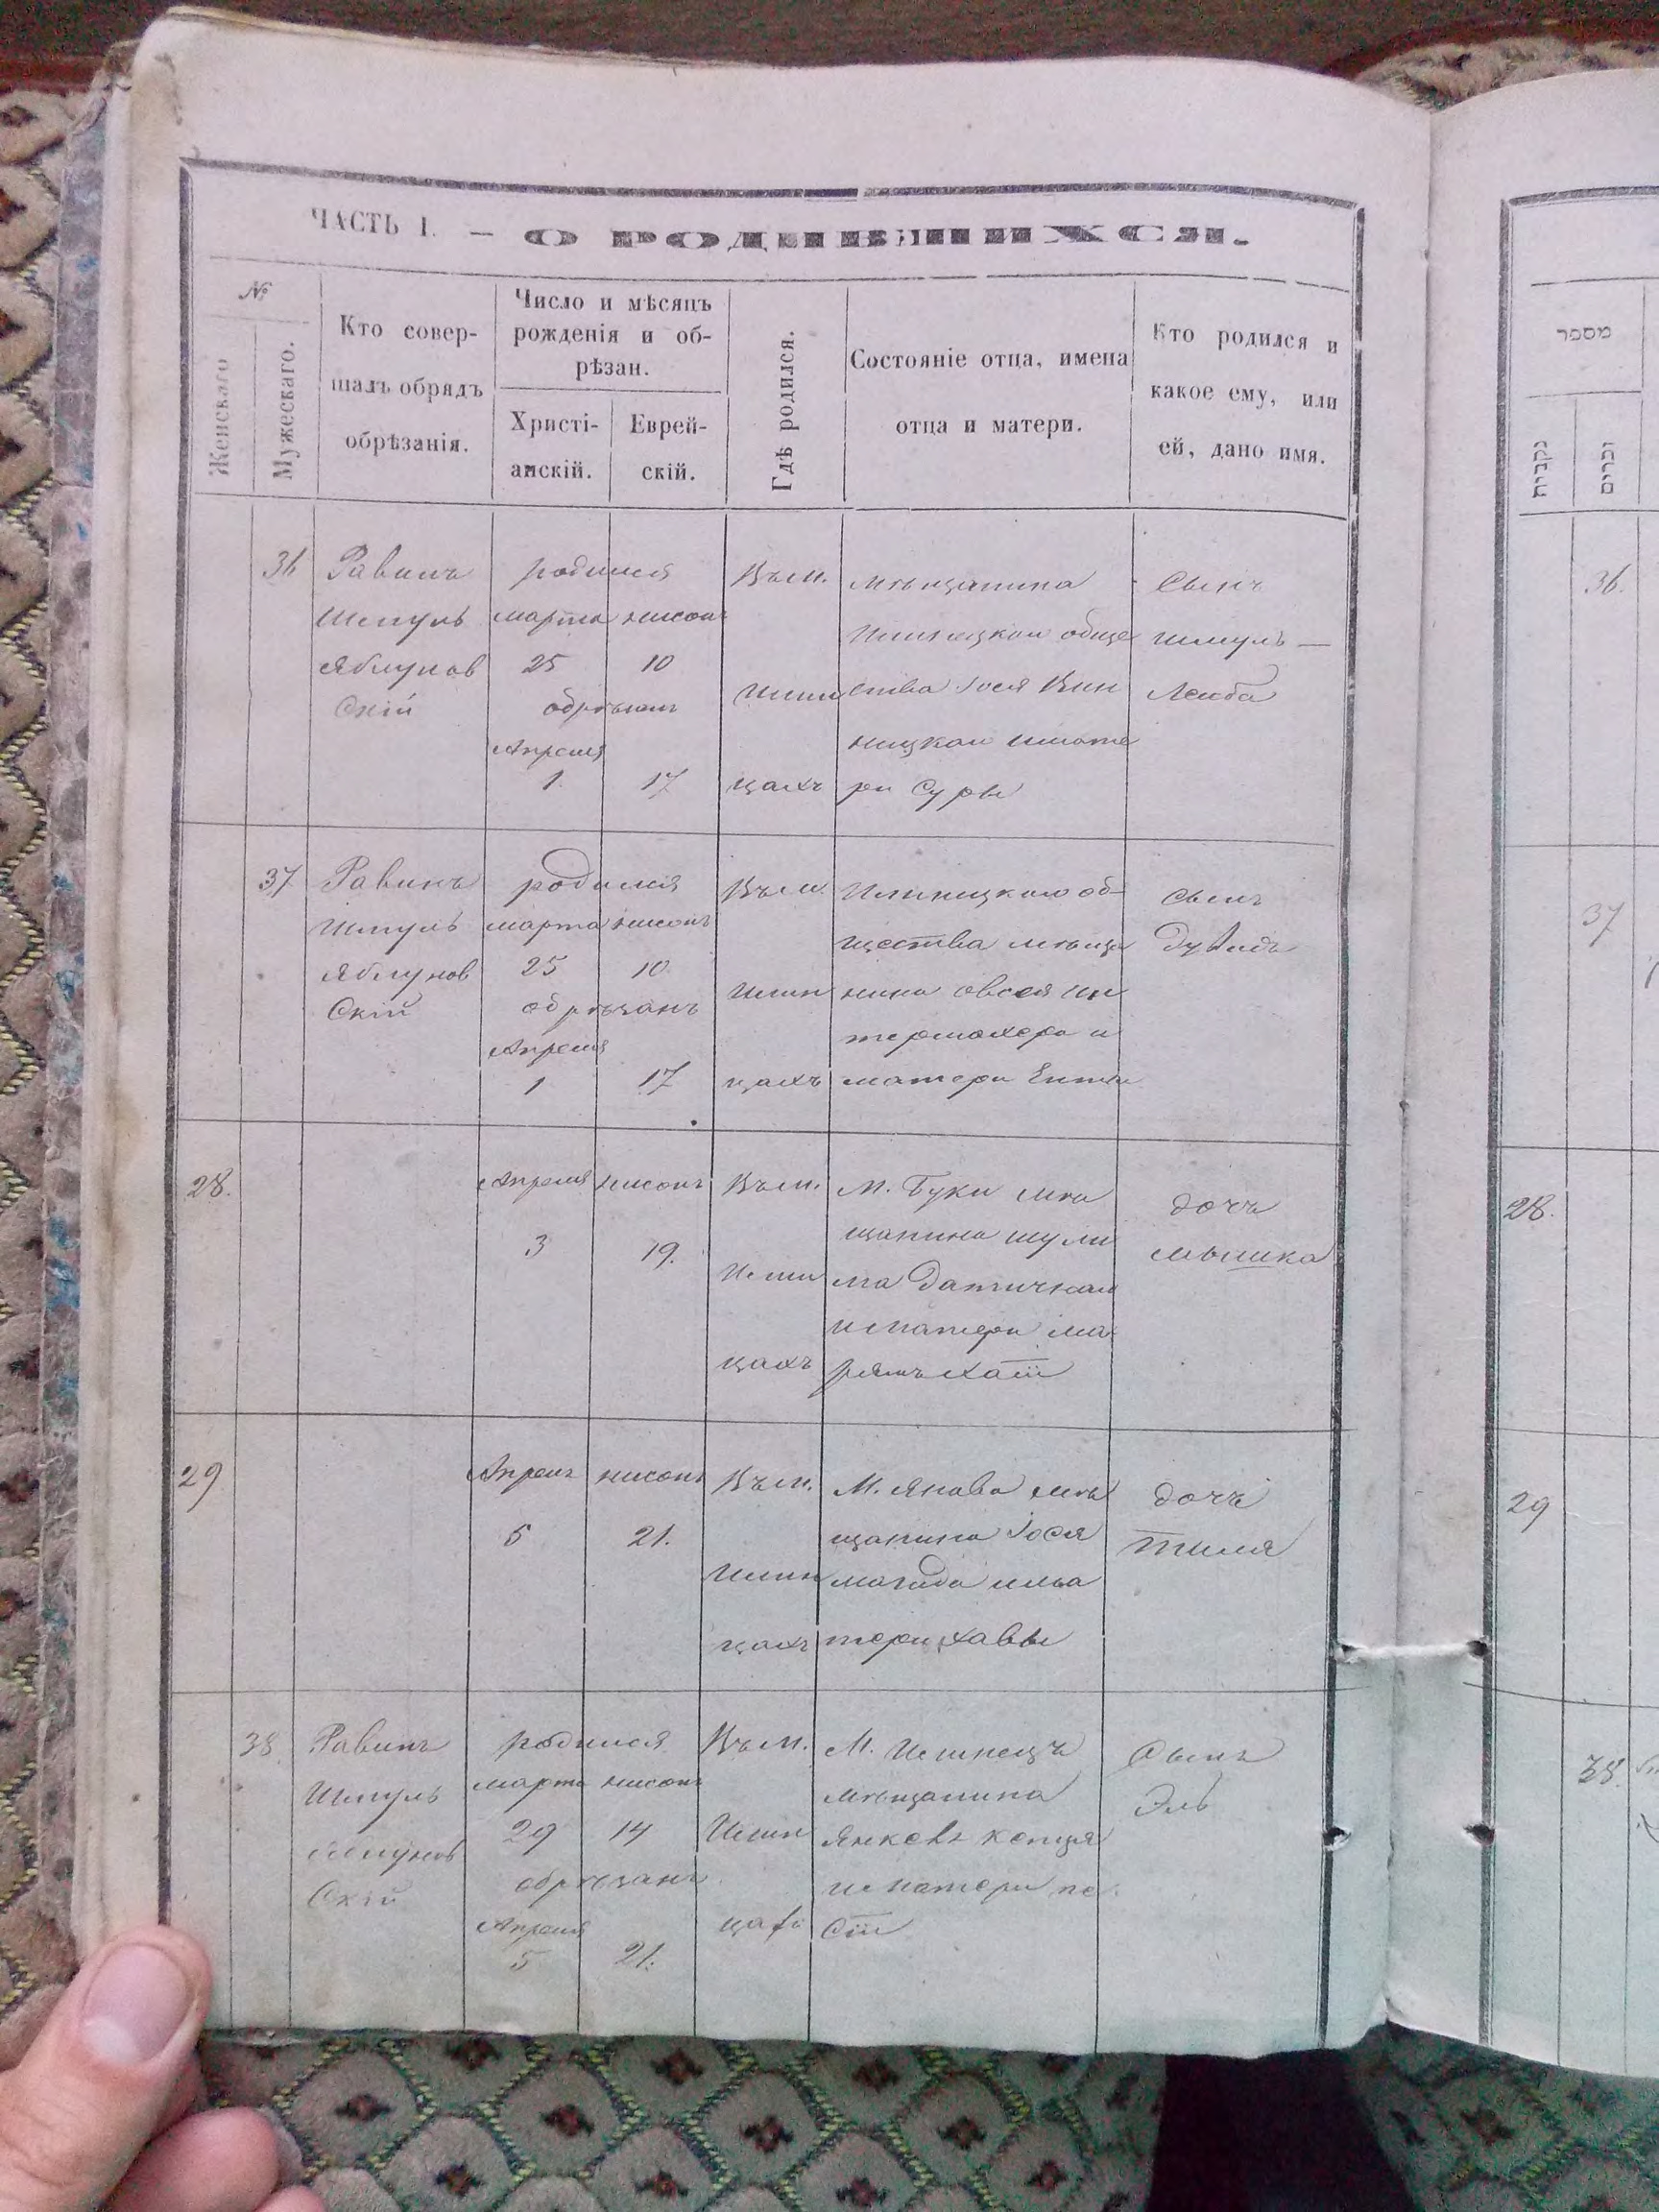 ЧАСТЬ I. — О РОДИВШИХСЯ.
№
Женскаго
Мужескаго.
Кто совер-
шалъ обрядъ
обрѣзанія.
Число и мѣсяцъ
рожденія и об-
рѣзан.
Христі-
анскій.
Еврей-
скій.
Гдѣ родился.
Состояніе отца, имена
отца и матери.
Кто родился и
какое ему, или
ей, дано имя.
36
Равинъ
Шмуль
Яблунов
скій
родился
марта нисонъ
25 10
обрѣзанъ
Апреля
1 17
Въ м.
Илин
цахъ
мѣщанина
Илинецкаго обще
ства Iося Вин
ницкаго и мате
ри Суры
Сынъ
Шмуль —
Лейба
37
Равинъ
Шмуль
Яблунов
скій
родился
марта нисонъ
25 10
обрѣзанъ
Апреля
1 17
Въ м.
Илин
цахъ
Илинецкаго об-
щества мѣща
нина Овсея Ин
термахера и
матери Енты
сынъ
Дувидъ
28.
Апреля нисонъ
3 19.
Въ м.
Илин
цахъ
М. Буки мѣ
щанина Шули
ма
и матери Ма
рямъ Хаіи
дочь
Мышка
29
Апрель нисонъ
5 21.
Въ м.
Илин
цахъ
М. Янова мѣ
щанина Iося
Магида и ма
тери Хавы
дочь
Тиля
38
Равинъ
Шмуль
Яблунов
скій
родился
марта нисонъ
29 14
обрѣзанъ
Апреля
5 21.
Въ м.
Илин
М. Илинецъ
мѣщанина
Янкеля
и матери Пе
сіи
Сынъ
Эль
מספר
נקבות
זכרים
36.
37
28.
29
38.